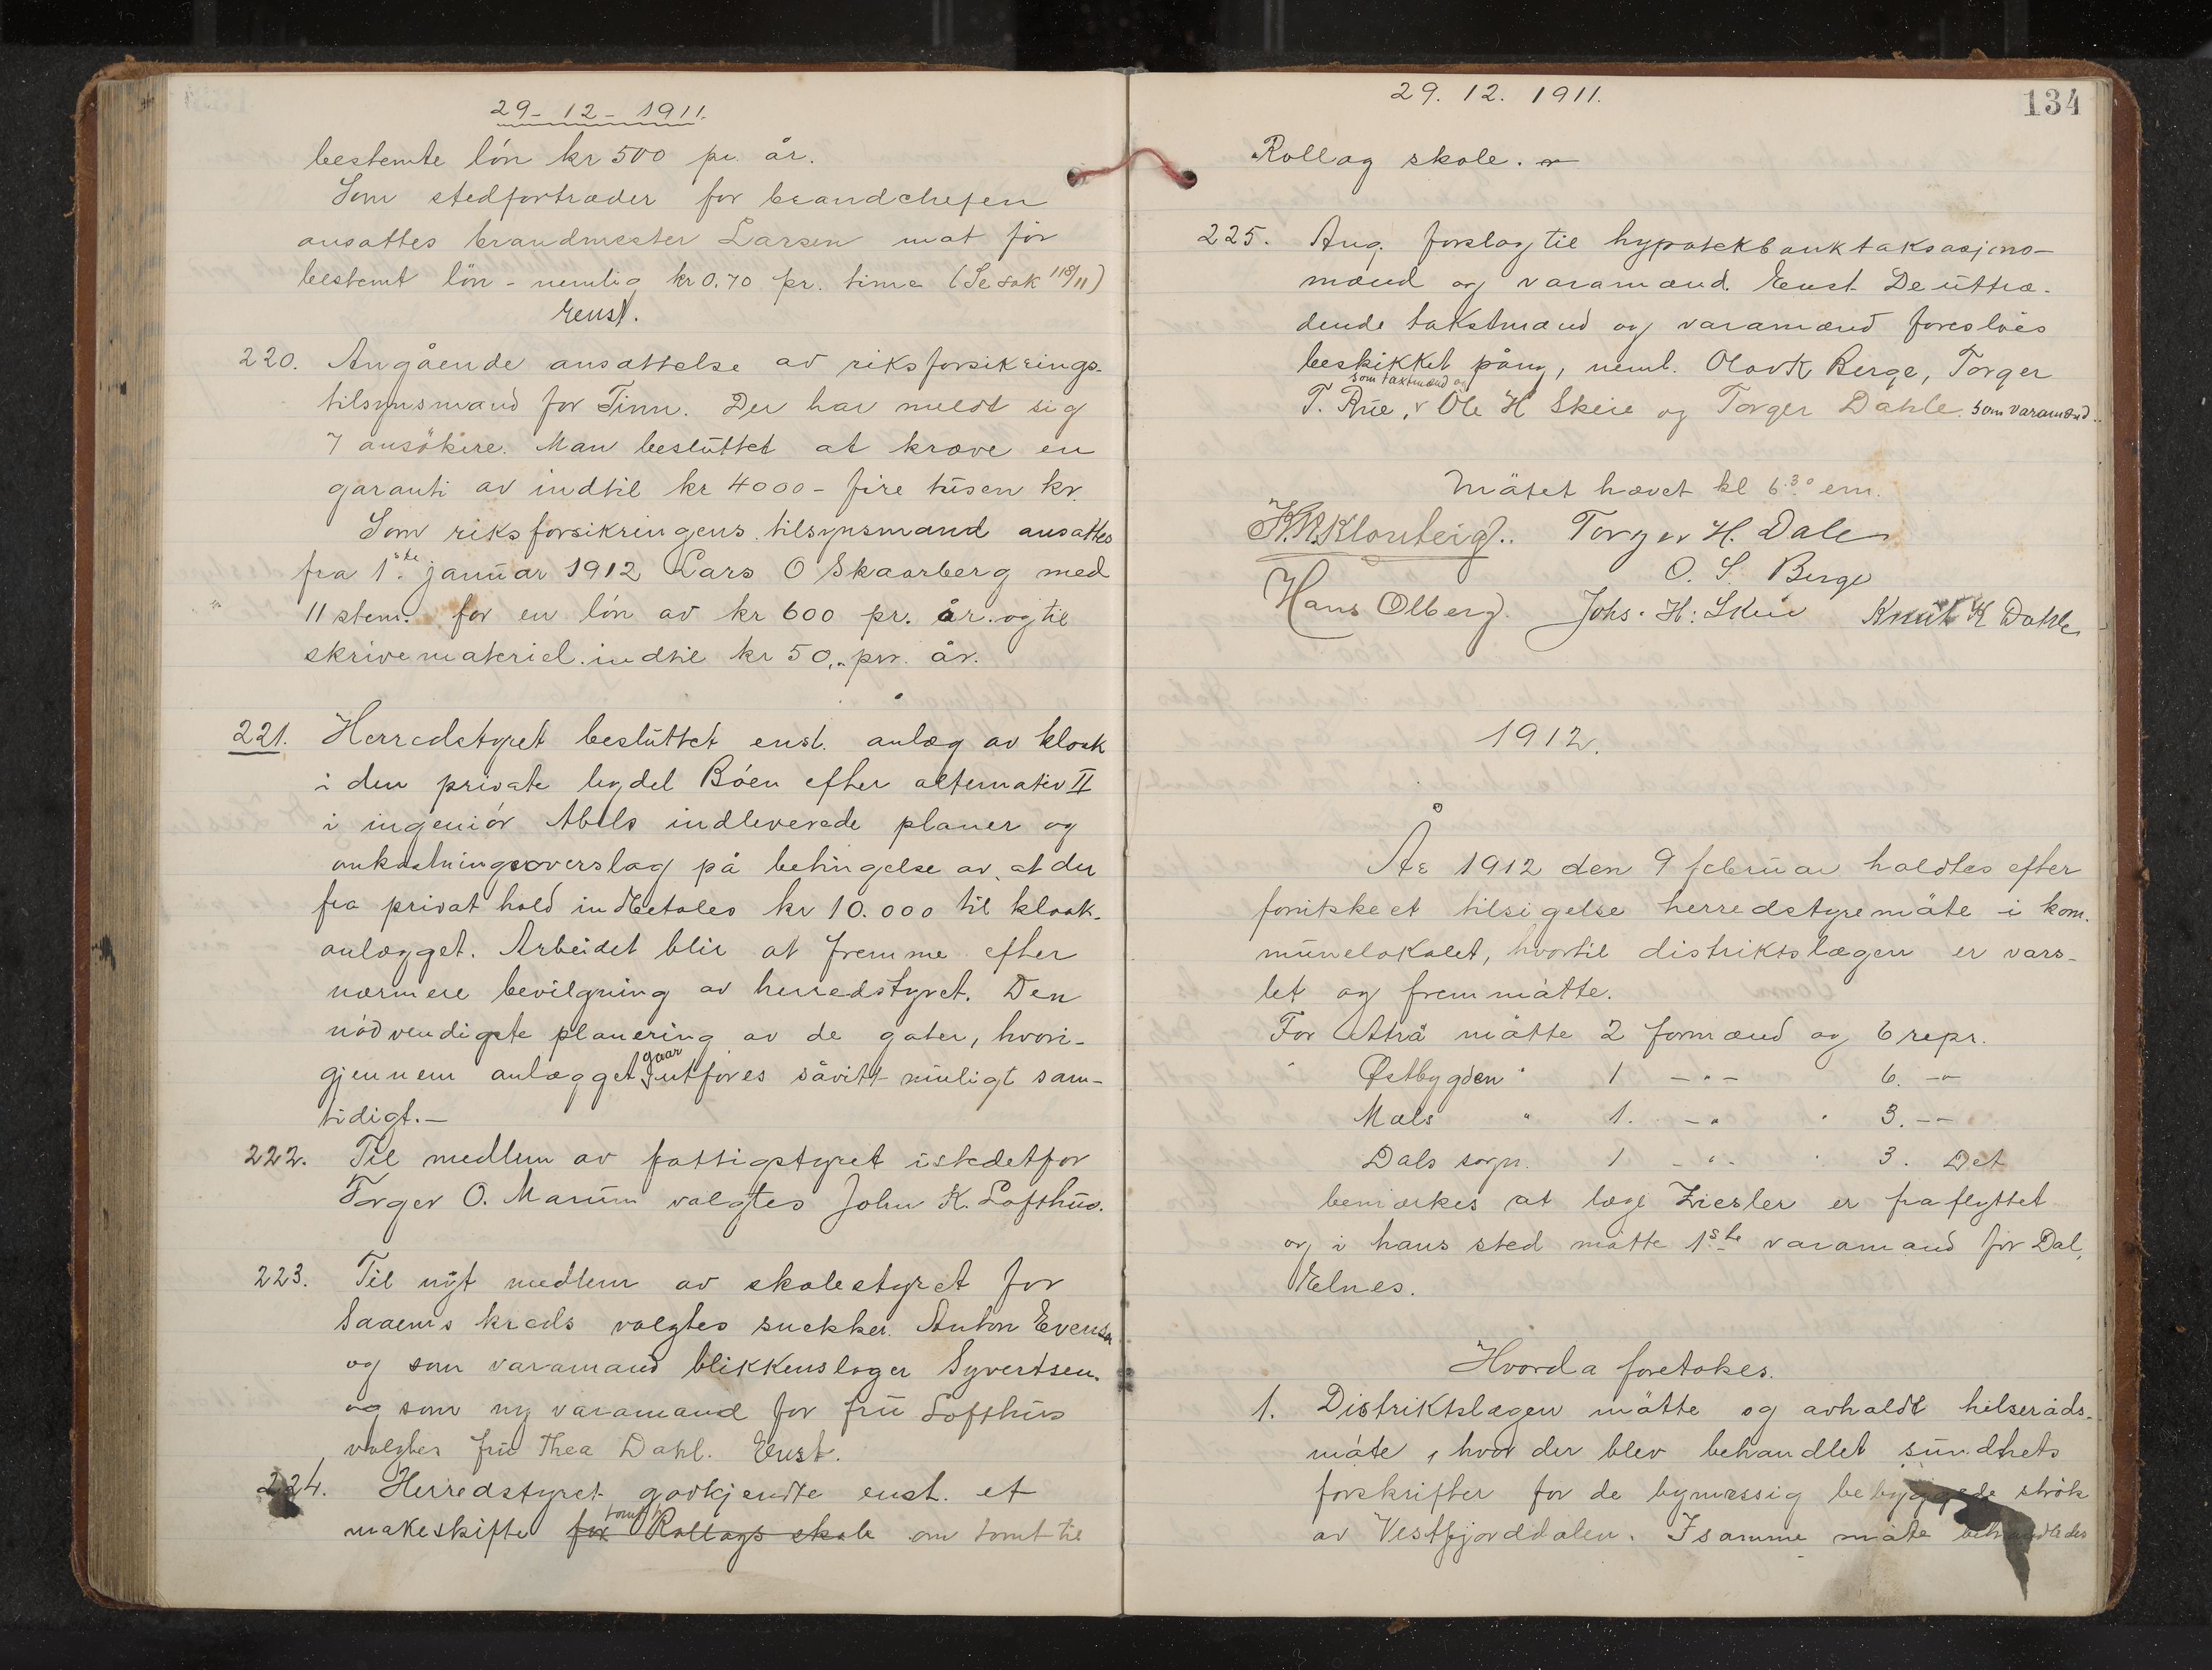 29-12-1911.
bestemte lön kr 500 pr. år.
Som stedfortræder for brandchefen
ansattes brandmester Larsen mot för
bestemt lön - nemlig kr 0.70 pr. time (Se sak 118/11)
Enst.
220. Angående ansættelse av riksforsikrings-
tilsynsmand for Tinn. Der har meldt sig
7 ansökere. Man besluttet at kræve en
garanti av indtil kr 4000 - fire tusen kr.
Som riksforsikringens tilsynsmand ansattes
fra 1ste januar 1912 Lars O Skaarberg med
11 stem. for en lön av kr 600 pr. år. og til
skrivemateriel indtil kr 50,- pr. år.
221. Herredstyret besluttet enst. anlæg av kloak
i den private bydel Böen efter alternativ II
i ingeniör Abels indleverede planer og
omkostningsoverslag på betingelse av, at der
fra privat hold indbetales kr 10.000 til kloak-
anlægget. Arbeidet blir at fremme efter
nærmere bevilgning av herredstyret. Den
nödvendigste planering av de gater, hvori-
gjennem anlægget gaar utföres såvitt muligt sam-
tidigt.-
222. Til medlem av fattigstyret istedetfor
Torger O. Marum valgtes John K. Lofthus.
223. Til nyt medlem av skolestyret for
Saaem's kreds valgtes snekker Anton Evensen
og som varamand blikkenslager Syvertsen.
og som ny varamand for fru Lofthus
valgtes fru Thea Dahl. Enst.
224. Herredstyret godkjendte enst. et
makeskifte for Rollags skole om tomt til
29. 12. 1911.
134
Rollag skole.
225. Ang. forslag til hypotekbanktaksasjons-
mænd og varamænd. Enst. De uttræ-
dende takstmænd og varamænd foreslåes
beskikket påny, neml. Olav K Berge, Torger
T. Rue, som taxtmænd og Ole H Skeie og Torger Dahle som varamænd.
Mötet hævet kl 6.30 em.
H. R. Klonteig. Torger H. Dale
O. S. Berge
Hans Olberg. Johs. H. Skeie Knut K Dahle
1912.
År 1912 den 9 februar holdtes efter
forutskeet tilsigelse herredstyremöte i kom-
munelokalet, hvortil distriktslægen er vars-
let og fremmötte.
For Atrå mötte 2 formænd og 6 repr.
" Østbygden " 1 -"- 6. -"-
Mæls " 1. -" " 3. --
Dals sogn. 1 -"- " 3. Det
bemerkes at læge Ziesler er fraflyttet
og i hans sted mötte 1ste varamand för Dal,
Elnes.
Hvorda foretokes.
1. Distriktslægen mötte og avholdt helseråds-
möte, hvor der blev behandlet sundhets
forskrifter for de bymæssig bebyggede strök
av Vestfjorddalen. I samme möte behandledes